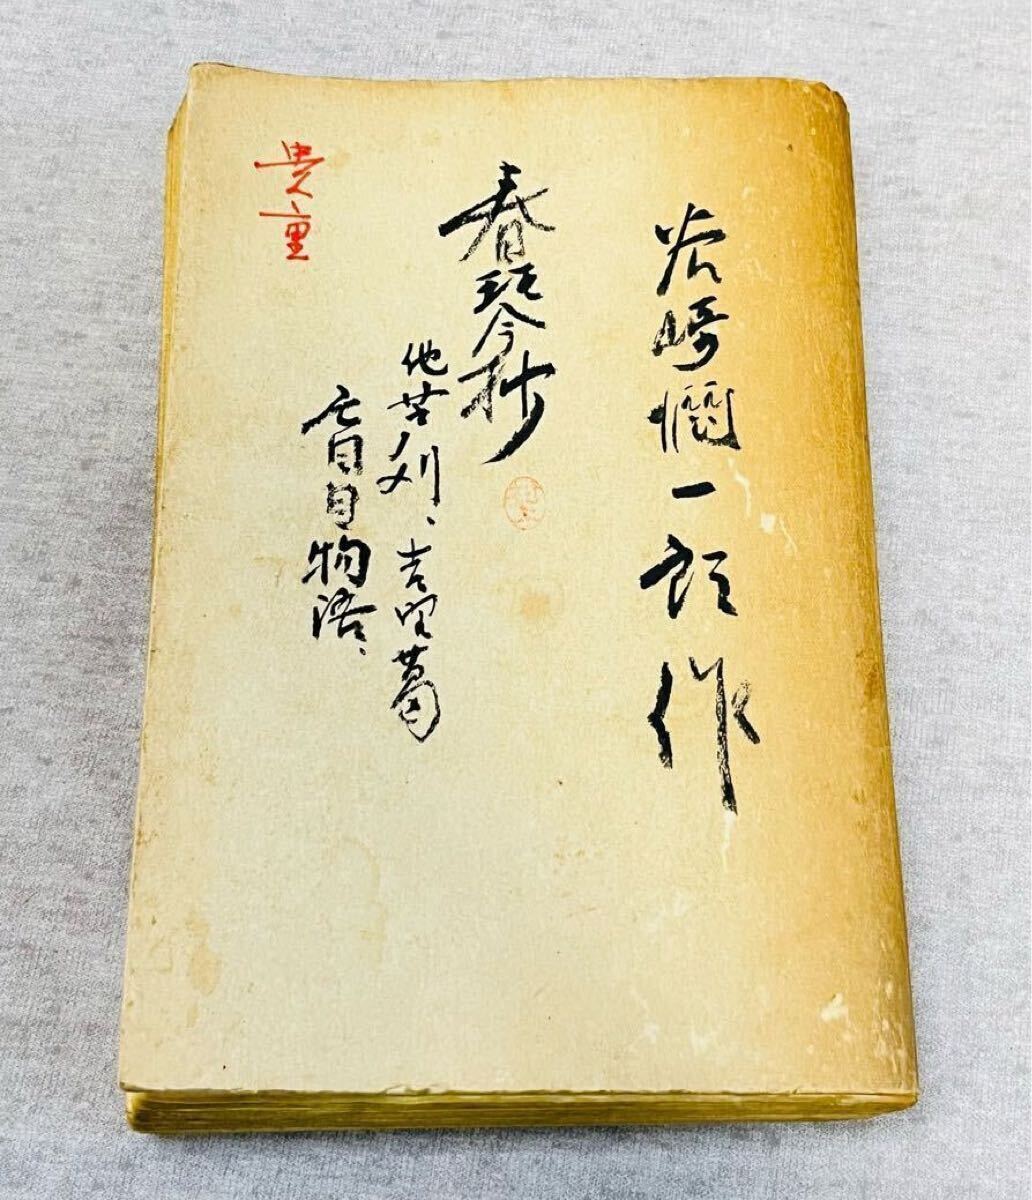 谷崎潤一郎作
春琴抄
他芦刈、吉野葛
盲目物語、
貴重